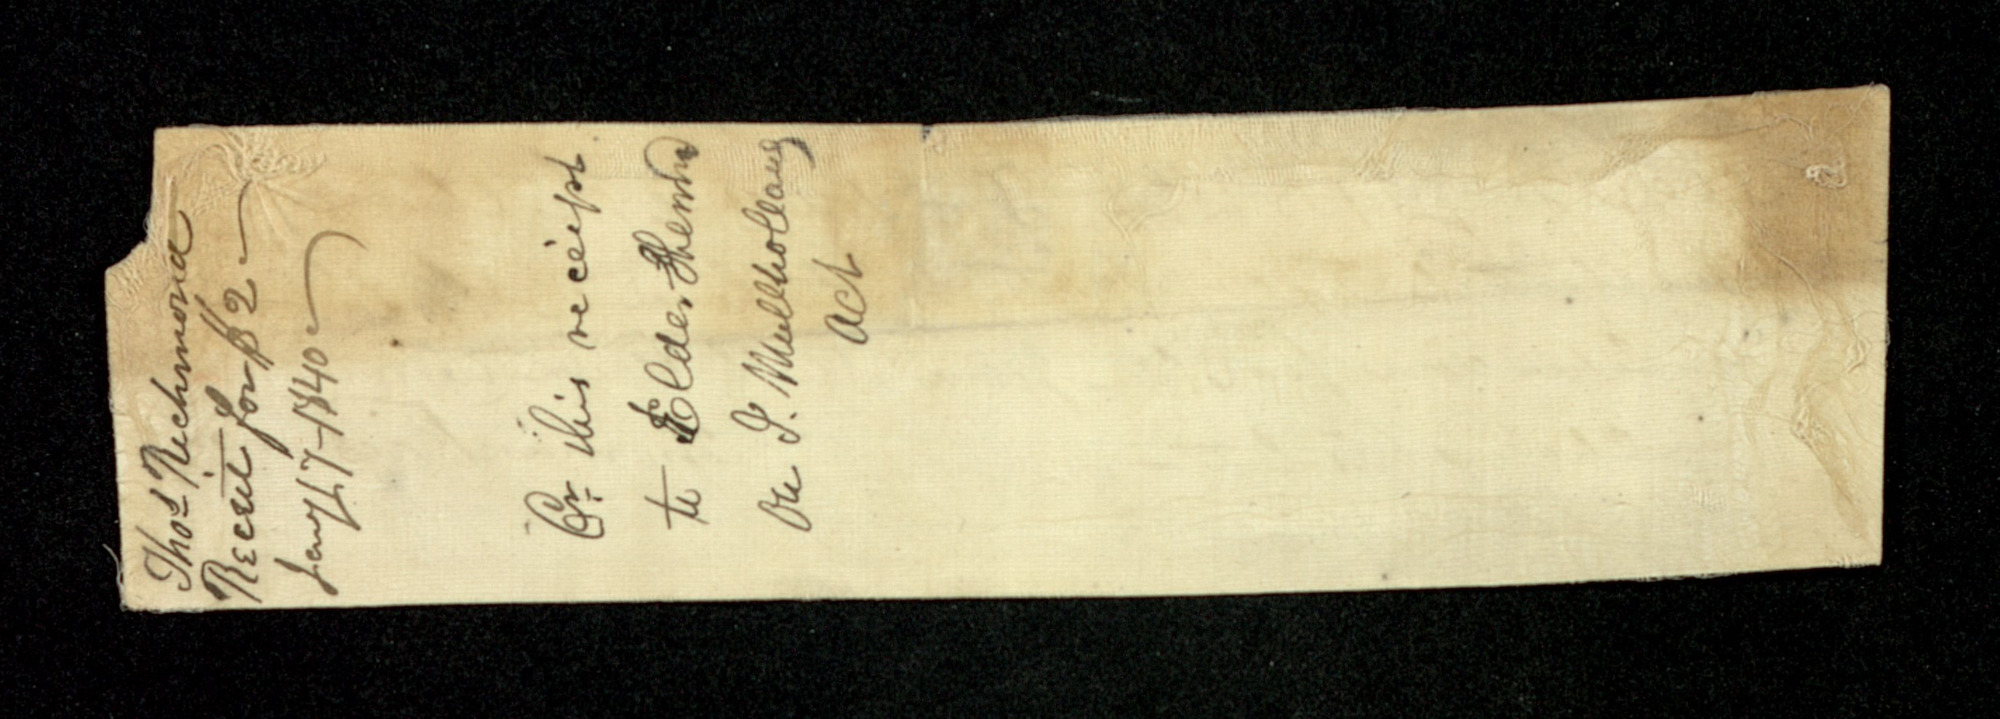 Thos Richmond
Receit for $2
Jany 17-1840
Cr this receipt
to Elder Sherwood
on J. Mulholland
act